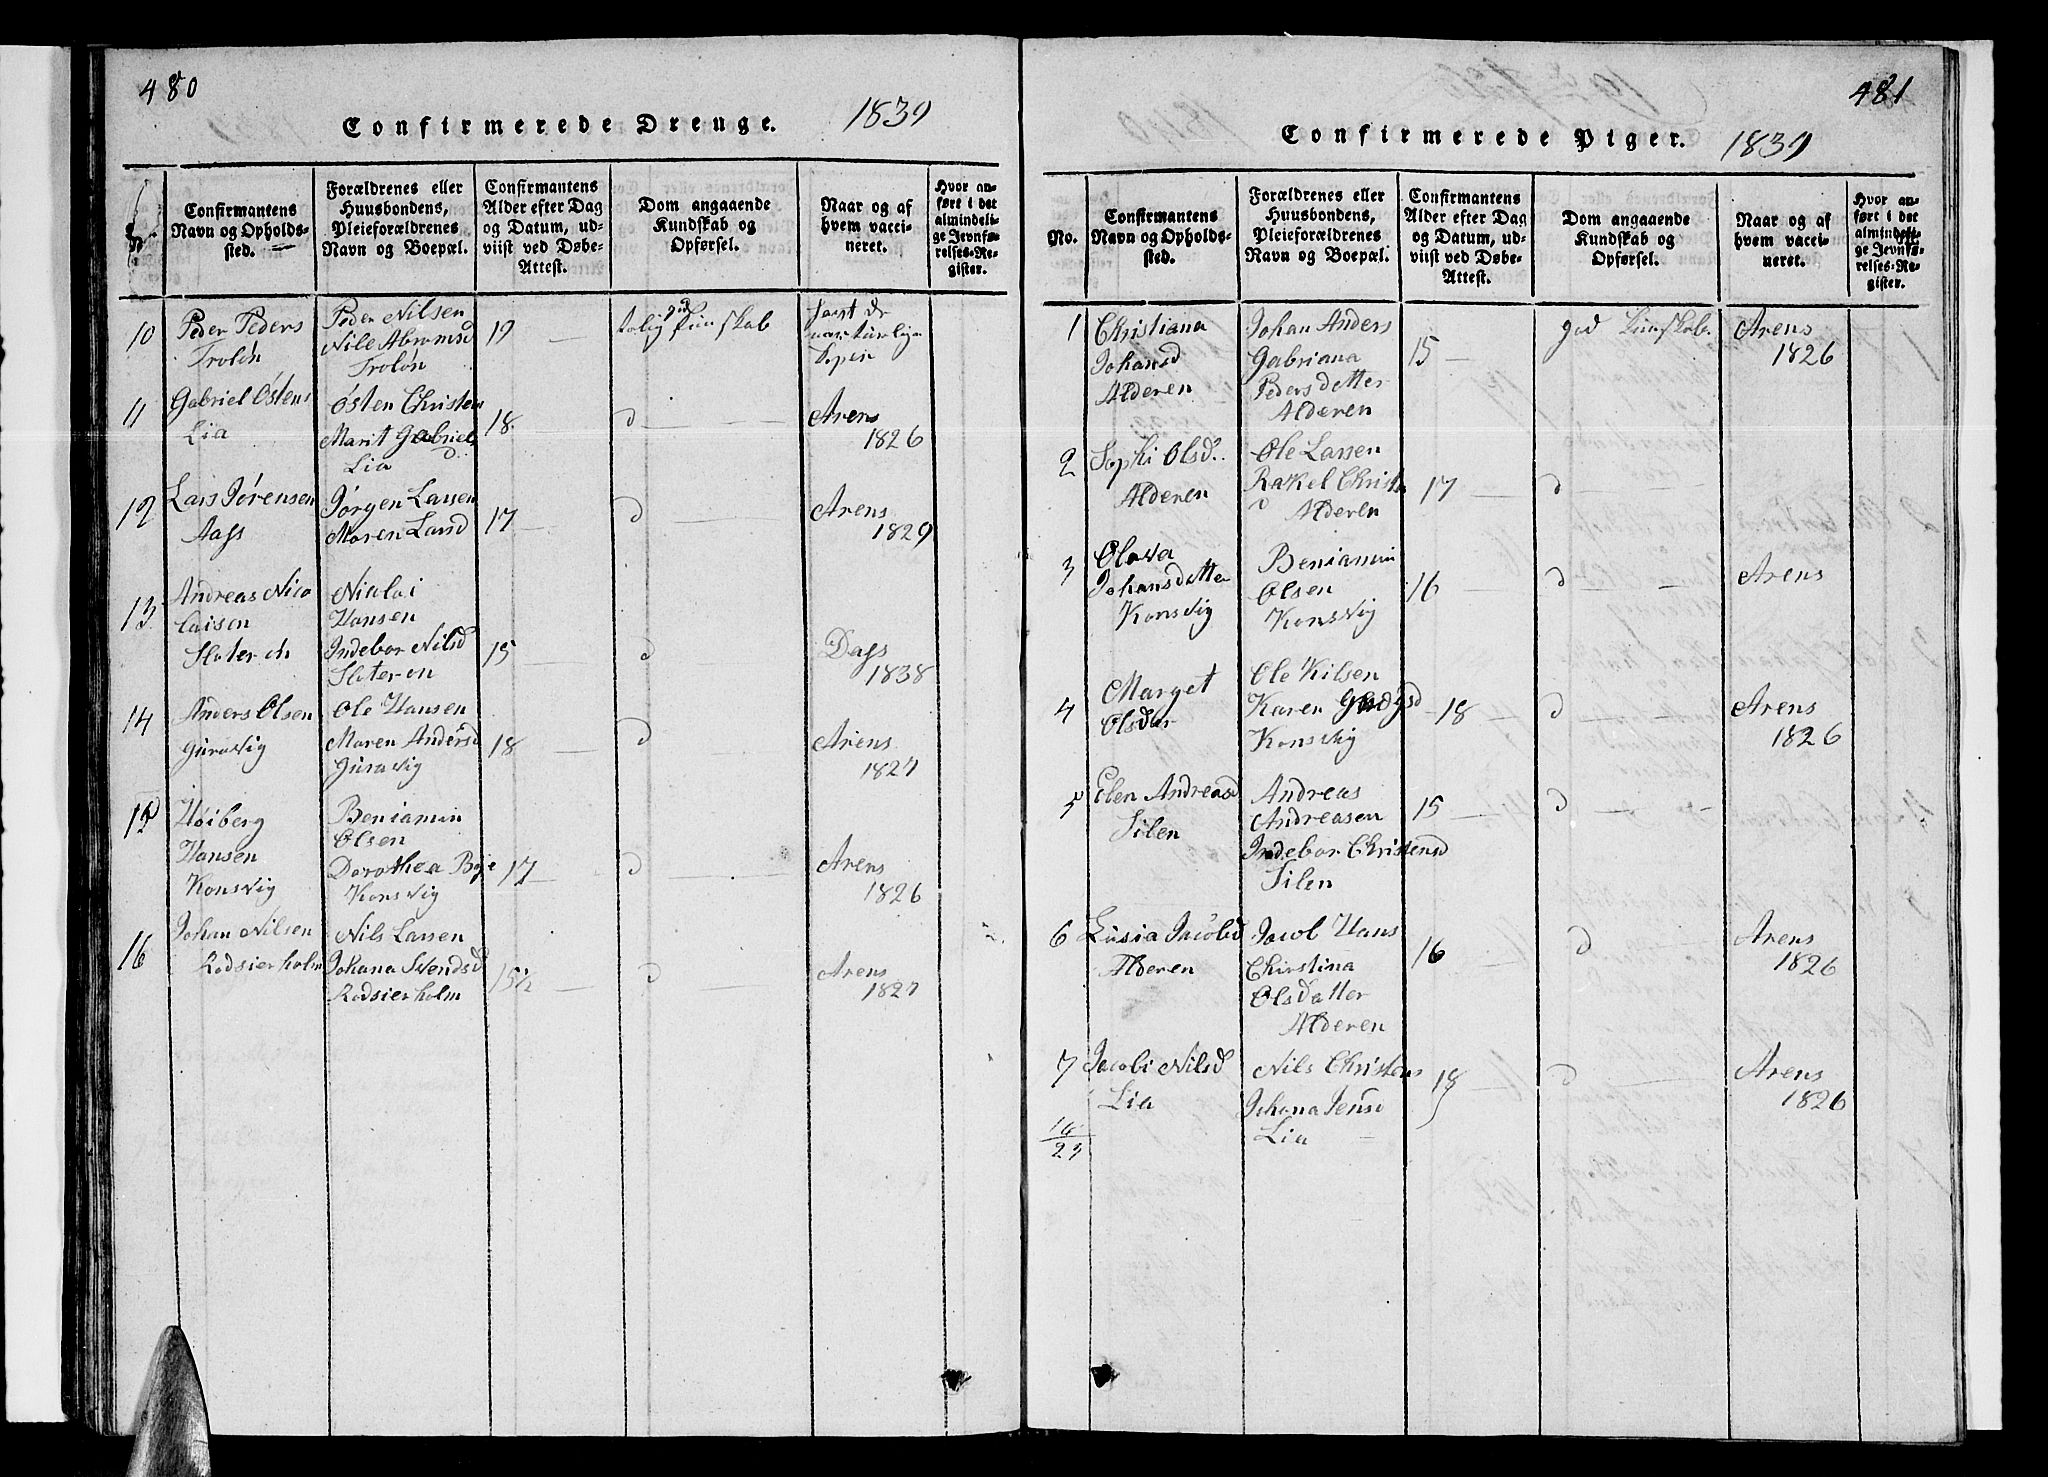 480
Confirmerede Drenge.
1839
No.
Confirmantens
Navn og Opholds-
sted.
Forældrenes eller
Huusbondens,
Pleieforældrenes
Navn og Boepæl.
Confirmantens
Alder efter Dag
og Datum, ud-
viist ved Døbe-
Attest.
Dom angaaende
Kundskab og
Opførsel.
Naar og af
hvem vacci-
neret.
Hvor an-
ført i det
almindeli-
ge Jevnfø-
relses-Re-
gister.
10
Peder Peders
Troløn
Peder Nilsen
Nille Abramsd
Troløn
19
tolig kunskab
havt de
natturlige
11
Gabriel Østens
Lia
Østen Christens
Marit Gabriels
d
Lia
18
d
Arens
1826
12
Lars Jørensen
Aags
Jørgen Larsen
Maren Larsd
17
d
Arens
1829
13
Andreas Nico
laisen
Slateren
Nicolai
Hansen
Indebor Nilsd
Slateren
15
d
Dags
1838
14
Anders Olsen
Guravig
Ole Hansen
Maren Andersd
Guravig
18
d
Arens
1827
15
Høiberg
Hansen
Konsvig
Beniamin
Olsen
Dorothea Boje
Konsvig
17
d
Arens
1826
16
Johan Nilsen
Rodsierholm
Nils Larsen
Johana Svendsd
Rodsierholm
15½
d
Arens
1827
481
Confirmerede Piger.
1839
No.
Confirmantens
Navn og Opholds-
sted.
Forældrenes eller
Huusbondens,
Pleieforældrenes
Navn og Boepæl.
Confirmantens
Alder efter Dag
og Datum, ud-
viist ved Døbe-
Attest.
Dom angaaende
Kundskab og
Opførsel.
Naar og af
hvem vacci-
neret.
Hvor an-
ført i det
almindeli-
ge Jevnfø-
relses-Re-
gister.
1
Christiana
Johansd
Alderen
Johan Anders
Gabriana
Pedersdetter
Alderen
15
god kunskab
Arens
1826
2
Sophi Olsd
Alderen
Ole Larsen
Rakel Christe
d
Alderen
17
d
3
Olava
Johansdatte
Konsvig
Beniamin
Olsen
Konsvig
16
d
Arens
4
Marget
Olsdar
Ole Kilsen
Karen
Konsvig
18
d
Arens
1826
5
Elen Andreasd
Silen
Andreas
Andreasen
Indebor Christensd
Silen
15
d
6
Lusia Jacobsd
Alderen
Jacob Hans
Christina
Olsdatter
Alderen
16
d
Arens
1826
7
Jacobi Nilsd
Lia
Nils Christens
Johana Jensd
Lia
18
d
Arens
1826
16
23